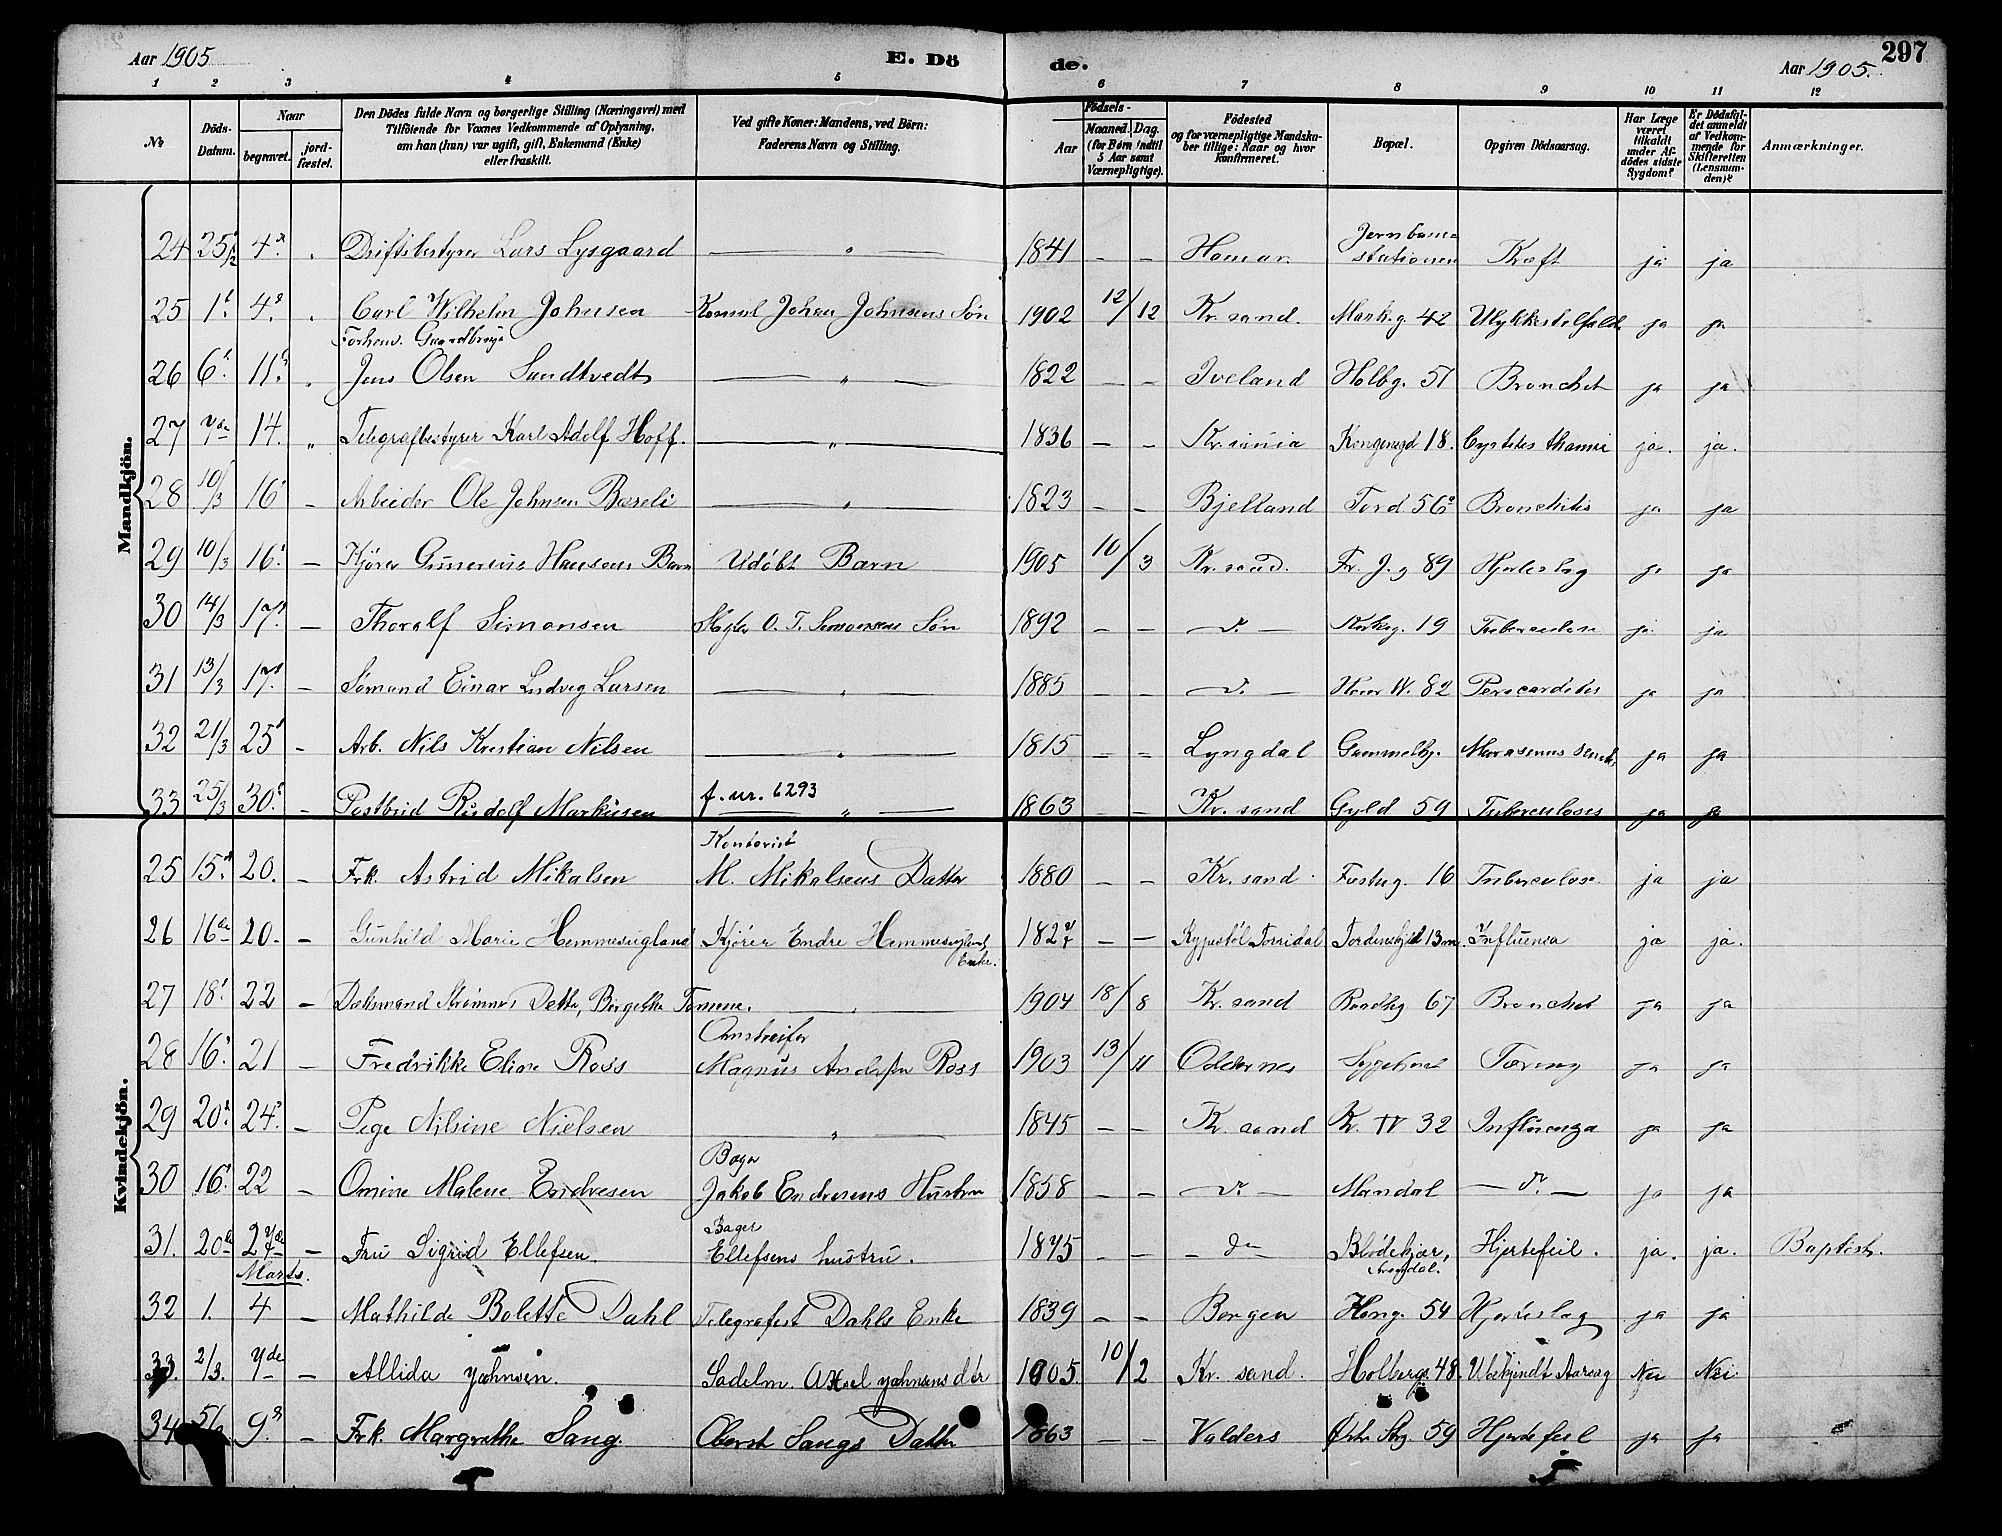 Aar 1905
E. Dö
de.
Aar 1905.
297
1 2 3 4 5 6 7 8 9 10 11 12
№
Döds-Datum.
Naar
begravet.
jord-fæstet.
Den Dödes fulde Navn og borgerlige Stilling (Næringsvei) med
Tilföiende for Voxnes Vedkommende af Oplysning,
om han (hun) var ugift, gift, Enkemand (Enke)
eller fraskilt.
Ved gifte Koner: Mandens, ved Börn:
Faderens Navn og Stilling.
Födsels-
Aar
Maaned. Dag.
(for Børn indtil
5 Aar samt
Værnepligtige).
Födested
og for værnepligtige Mandska-
ber tillige: Naar og hvor
konfirmeret.
Bopæl.
Opgiven Dödsaarsag.
Har Læge
været
tilkaldt
under Af-
dödes sidste
Sygdom?
Er Dödsfal-
det anmeldt
af Vedkom-
mende for
Skifteretten
(Lensman-
den)?
Anmærkninger.
Mandkjön.
24 25/2 4. Driftsbestyrer Lars Lysgaard — " — 1841 — — Hamar Jernbane stationen Kræft ja ja
25 1. 4. Carl Wilhelm Johnsen Konsul Johan Johnsens Søn 1902 12/12 Kr.sand. Markg 42 Ulykkestilfælde ja ja
26 6. 11. Jens Olsen Sandtvedt — " — 1822 — — Iveland Holbg. 51 Bronchit ja ja
27 7de 14. " Telegrafbestyrer Karl Adolf Hoff. — " — 1836 — — Kr.ania Kongensgd 18. ja. ja.
28 10/3 16 — Arbeider Ole Johnsen — " — 1823 — — Bjelland Tord 56 Bronchitis ja ja
29 10/3 16. — Kjører Gunerius Hansens Barn Udøbt Barn 1905 10/3 Kr.sand. Fr. J. g 89 Hjerteslag ja ja
30 14/3 17. — Thoralf Simonsen O. T. Simonsens Søn 1892 — — — d. — 19 Tuberculose ja ja
31 13/3 17. — Sømand Einar Ludvig Larsen — " — 1885 — — — d. — W. 82 Pericarditis ja ja
32 21/3 25 — Arb. Nils Kristian Nilsen — " — 1815 — — Lyngdal Gammelby. Marasmus ja ja
33 25/3 30. — Postbud Rudolf Markusen f. nr. 6293 — " — 1863 — — Kr.sand Gyld 59 Tuberculosis ja ja
Kvindekjön.
25 15. 20. — Frk. Astrid Mikalsen Kontorist M. Mikalsens Datter 1880 — — Kr.sand Festng. 16 Tuberculose ja ja
26 16de 20. — Gunhild Marie Kjører Endre Enke. 1827 — — Torridal Tordenskjld 13 Influenza ja ja.
27 18. 22 — Datter, Bergitte — " — 1904 18/8 Kr.sand 67 Bronchit ja ja
28 16. 21 — Fredrikke Eline Ross Omstreifer Magnus Andersen Ross 1903 13/11 Oddernes Tæring ja ja
29 20. 24. — Pige Nilsine Nielsen — " — 1845 — — Kr. sand K. W 32 Influenza ja ja
30 16. 22 — Omine Malene Endresen Bager Jakob Endresens Hustru 1858 — — — d. — Mandal — d. — ja ja
31. 20de 27de — Fru Sigrid Ellefsen. Bager Ellefsens hustru. 1875 — — — do Blødekjær, Arendal. Hjertefeil. ja. ja. Baptist.
Marts.
32 1. 4 — Mathilde Bolette Dahl Telegrafist Dahls Enke 1839 — — Bergen Kong. 54 Hjerteslag ja ja
33. 2/3. 7de — Allida Johnsen. Sadelm. Axsel Johnsens dtr 1905. 10/2 Kr. sand. Holberg 48. Ubekjendt Aarsag Nei Nei
34 9. — Frk. Margrethe Sang. Oberst Sangs Datter 1863 — — Valders Østr Stg. 59 Hjertefeil ja ja